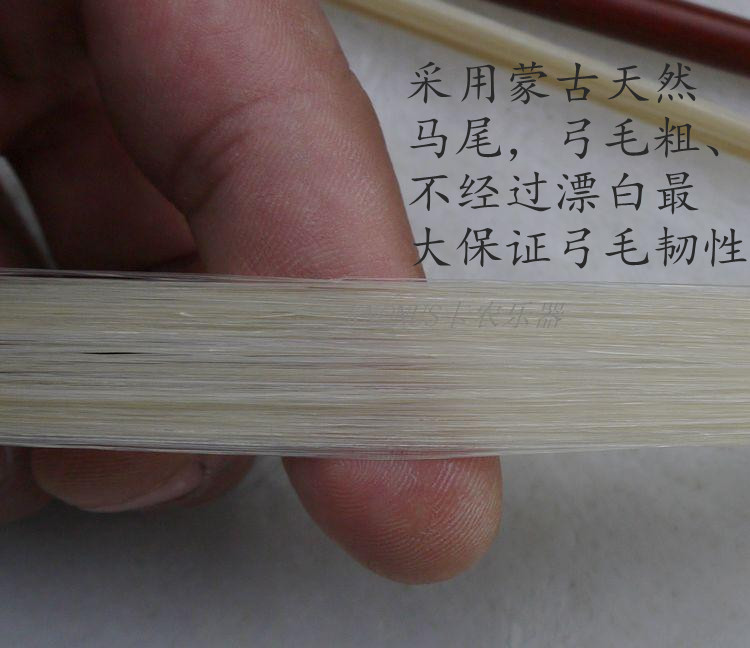 采用蒙古天然
马尾，弓毛粗、
不经过漂白最
大保证弓毛韧性
农乐器